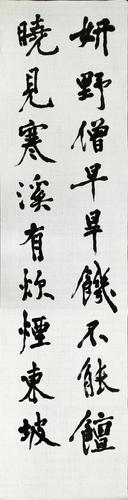 妍野僧早旱饑不能饘
曉見寒溪有炊煙東坡